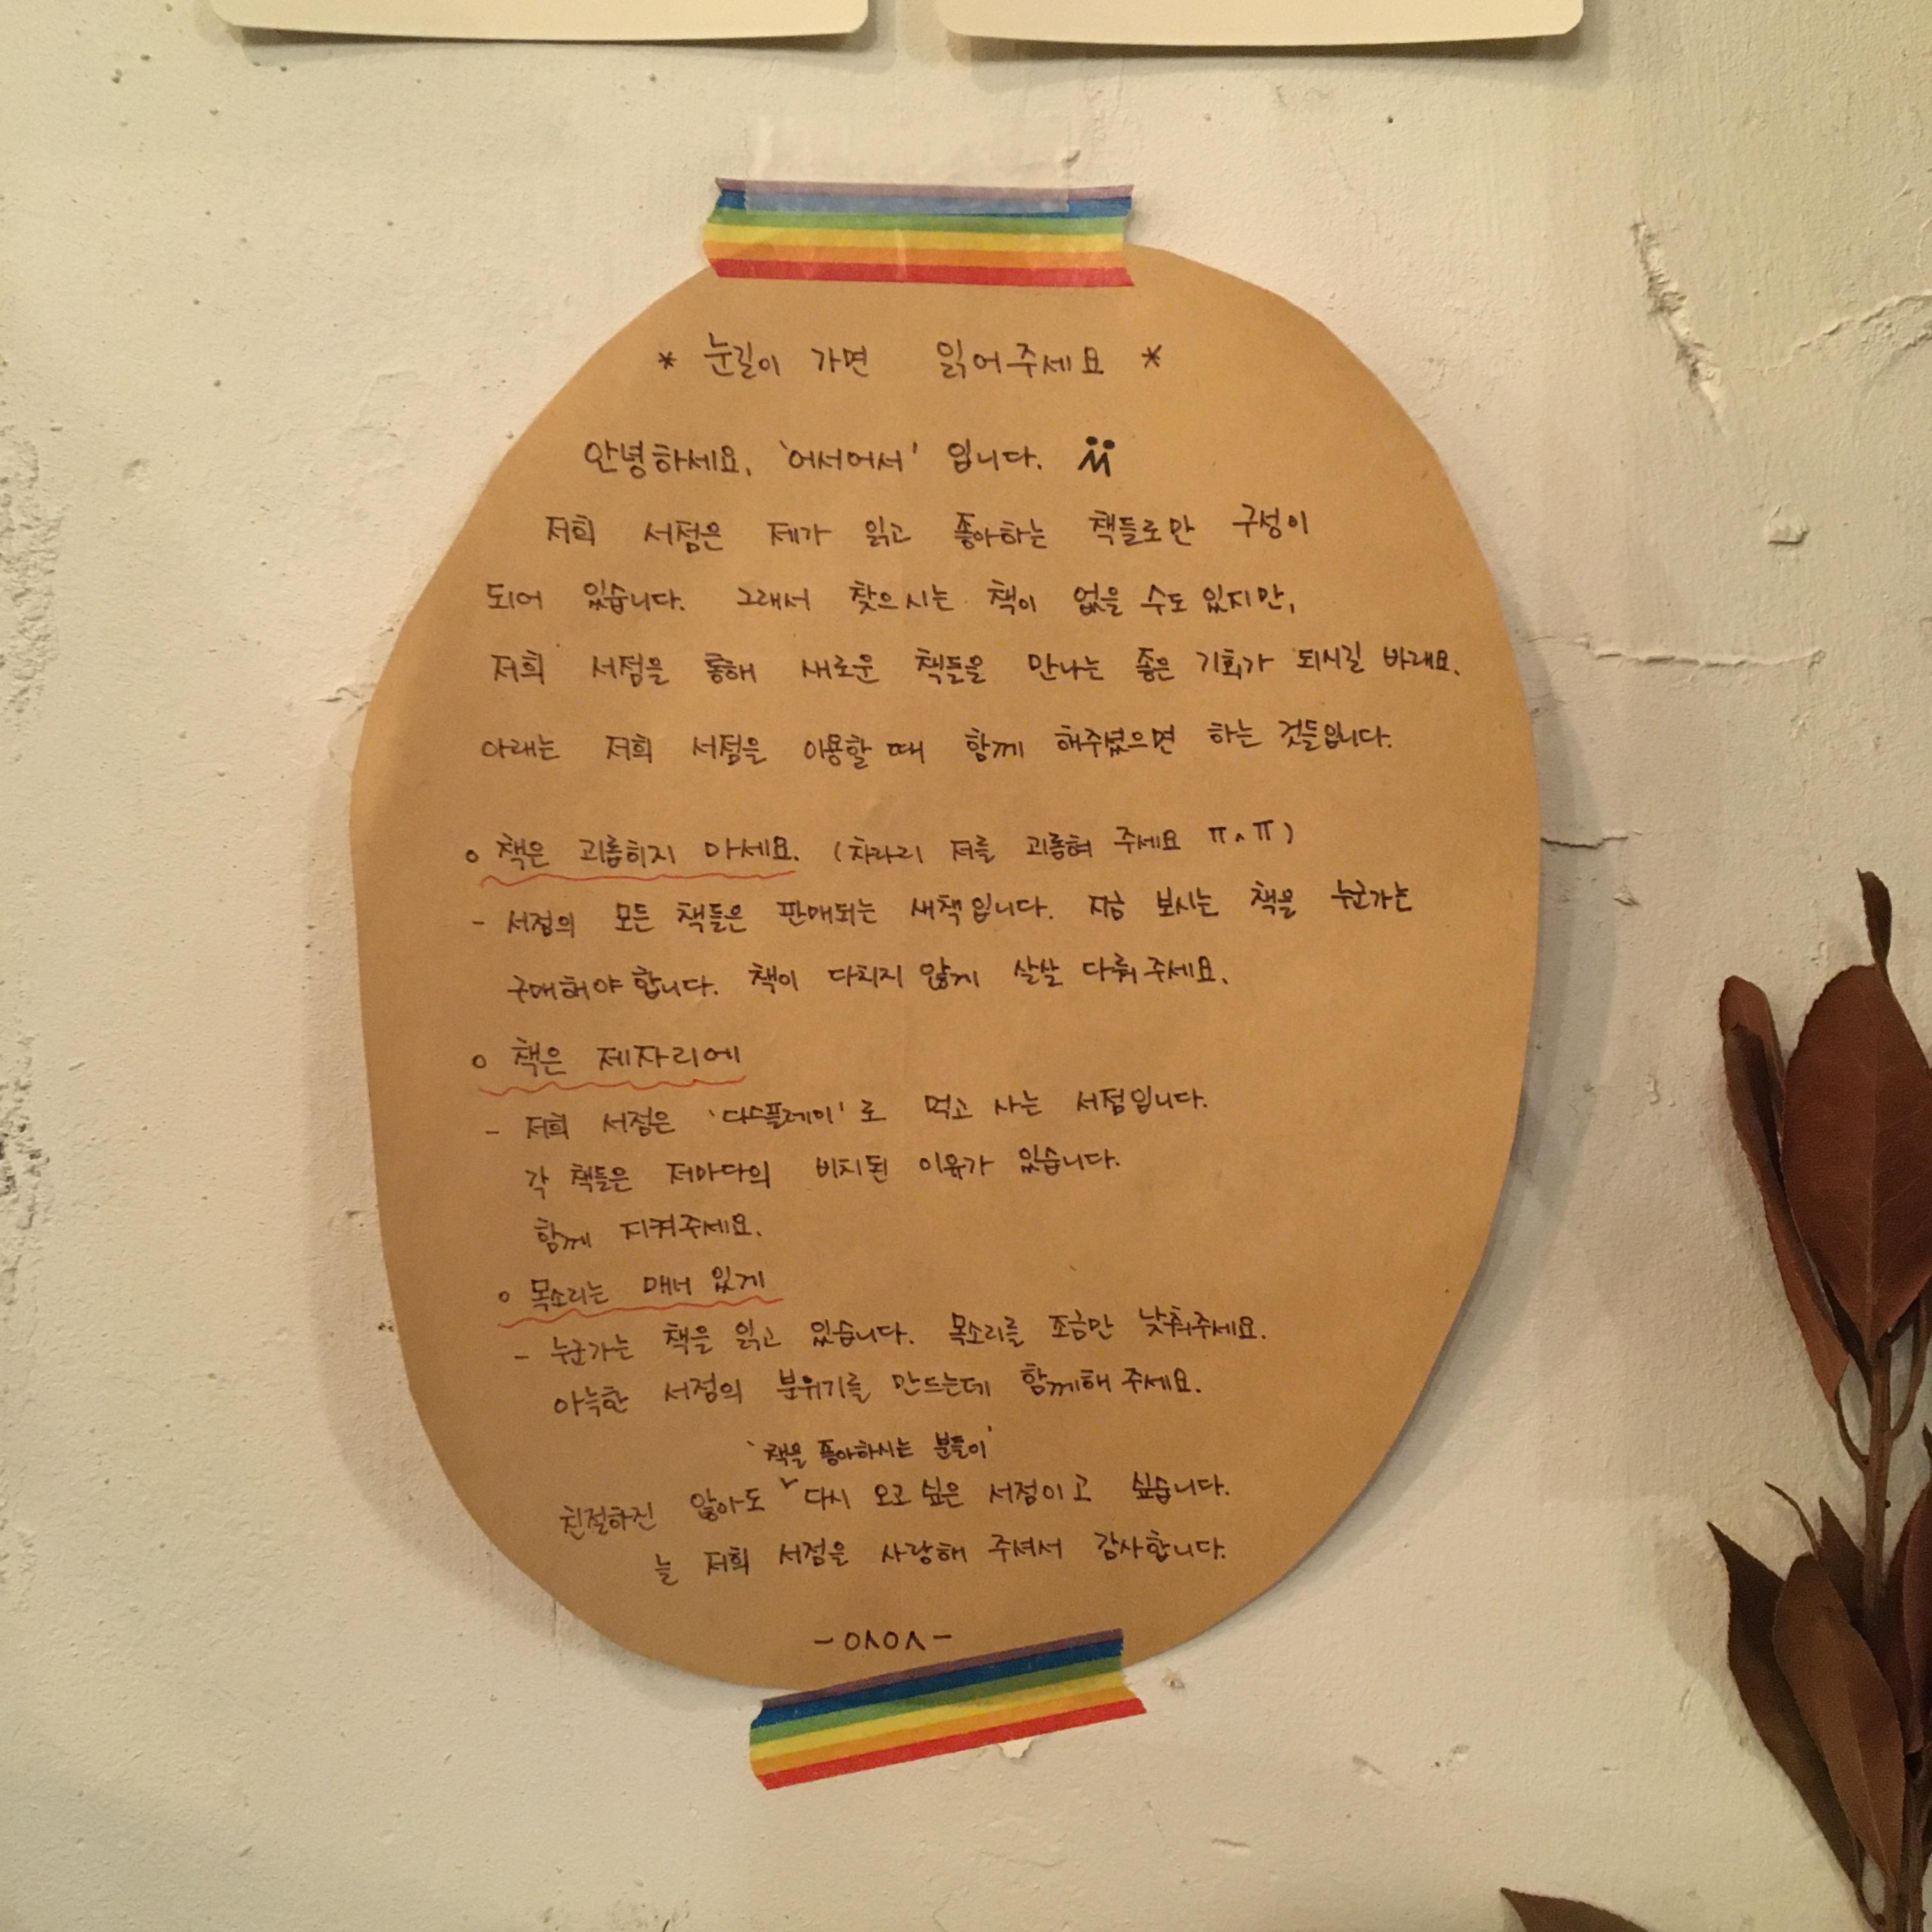 * 눈길이 가면 읽어주세요 *
안녕하세요, '어서어서' 입니다.
저희 서점은 제가 읽고 좋아하는 책들로만 구성이
되어 있습니다. 그래서 찾으시는 책이 없을 수도 있지만,
저희 서점을 통해 새로운 책들을 만나는 좋은 기회가 되시길 바래요.
아래는 저희 서점을 이용할 때 함께 해주셨으면 하는 것들입니다.
○ 책은 괴롭히지 마세요. (차라리 저를 괴롭혀 주세요 ㅠㅅㅠ)
- 서점의 모든 책들은 판매되는 새책입니다. 지금 보시는 책을 누군가는
구매해야 합니다. 책이 다치지 않게 살살 다뤄주세요.
○ 책은 제자리에
- 저희 서점은 '디스플레이'로 먹고 사는 서점입니다.
각 책들은 저마다의 비치된 이유가 있습니다.
함께 지켜주세요.
○ 목소리는 매너 있게
- 누군가는 책을 읽고 있습니다. 목소리를 조금만 낮춰주세요.
아늑한 서점의 분위기를 만드는데 함께해 주세요.
'책을 좋아하시는 분들이'
친절하진 않아도 ˅ 다시 오고 싶은 서점이고 싶습니다.
늘 저희 서점을 사랑해 주셔서 감사합니다.
- ㅇㅅㅇㅅ -